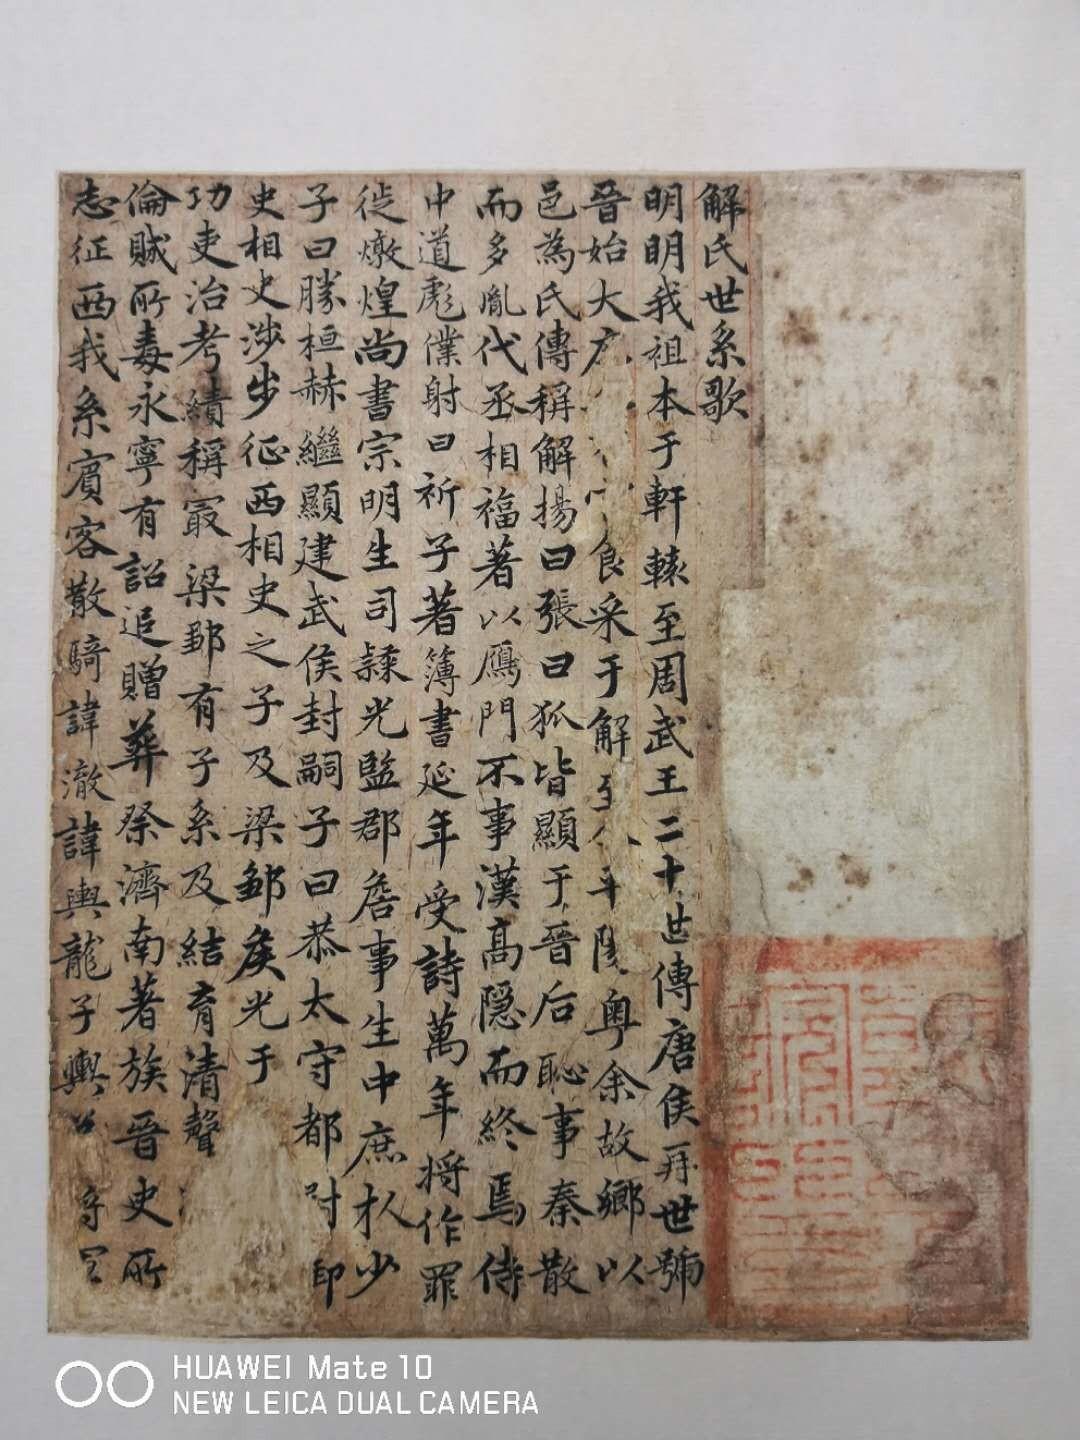 解氏世系歌
明明我祖本于軒轅至周武王二十世傳唐侯再世號
晉始大食采于解至粵余故鄉以
邑為氏傳稱解揚曰張曰狐皆顯于晉后恥事秦散
而多亂代丞相福著以鴈門不事漢高隱而終焉侍
中道彪僕射曰祈子著簿書延年受詩萬年將作罪
徙燉煌尚書宗明生司隸光監郡詹事生中庶朳少
子曰勝桓赫繼顯建武侯封嗣子曰恭太守都尉印
吏相史涉步征西相史之子及梁鄒侯光于
功吏治考績稱冣梁鄒有子系及結育清聲
倫賊所毒永寧有詔追贈葬祭濟南著族晉史所
志征西我系賓客散騎諱澈諱輿龍子輿
HUAWEI Mate 10
NEW LEICA DUAL CAMERA